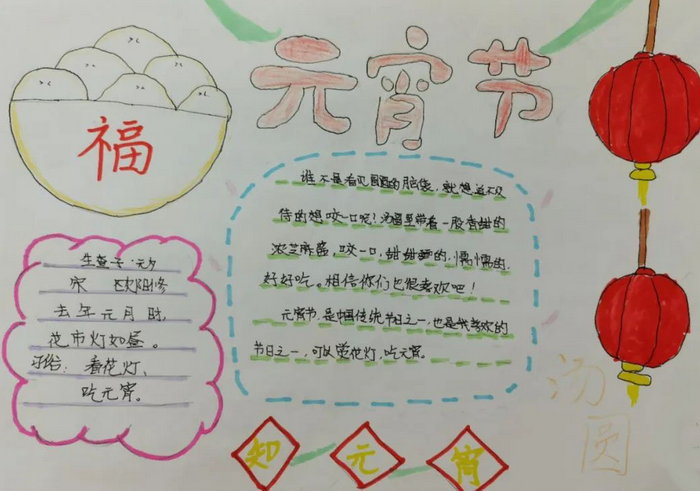 元宵节
福
谁不是看见圆圆的脑袋，就想迫不及
待的想咬一口呢？汤圆里带着一股香甜的
浓芝麻酱，咬一口，甜甜的，懦懦的，
好好吃。相信你们也很喜欢吧！
元宵节，是中国传统节日之一，也是我喜欢的
节日之一，可以赏花灯，吃元宵。
生查子·元夕
宋 欧阳修
去年元月时，
花市灯如昼。
习俗：看花灯、
吃元宵。
知 元 宵
汤
圆